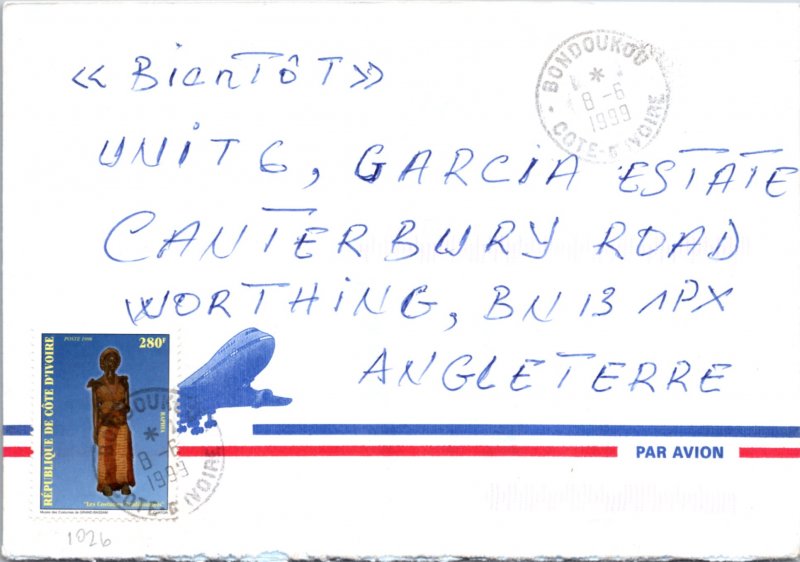 « BienTôT »
BONDOUKOU
8 -6
1999
COTE-D'IVOIRE
UNIT 6, GARCIA ESTATE
CANTERBURY ROAD
WORTHING, BN 13 1PX
ANGLETERRE
POSTE 1998
280F
RÉPUBLIQUE DE CÔTE D'IVOIRE
RAPHIA
"Les Costumes Traditionnels"
Musée des Costumes de GRAND-BASSAM
8 -6
1999
COTE-D'IVOIRE
PAR AVION
1026